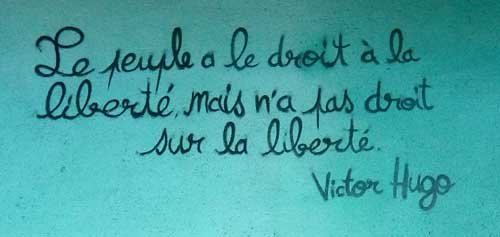 Le peuple a le droit à la
liberté, mais n'a pas droit
sur la liberté.
Victor Hugo